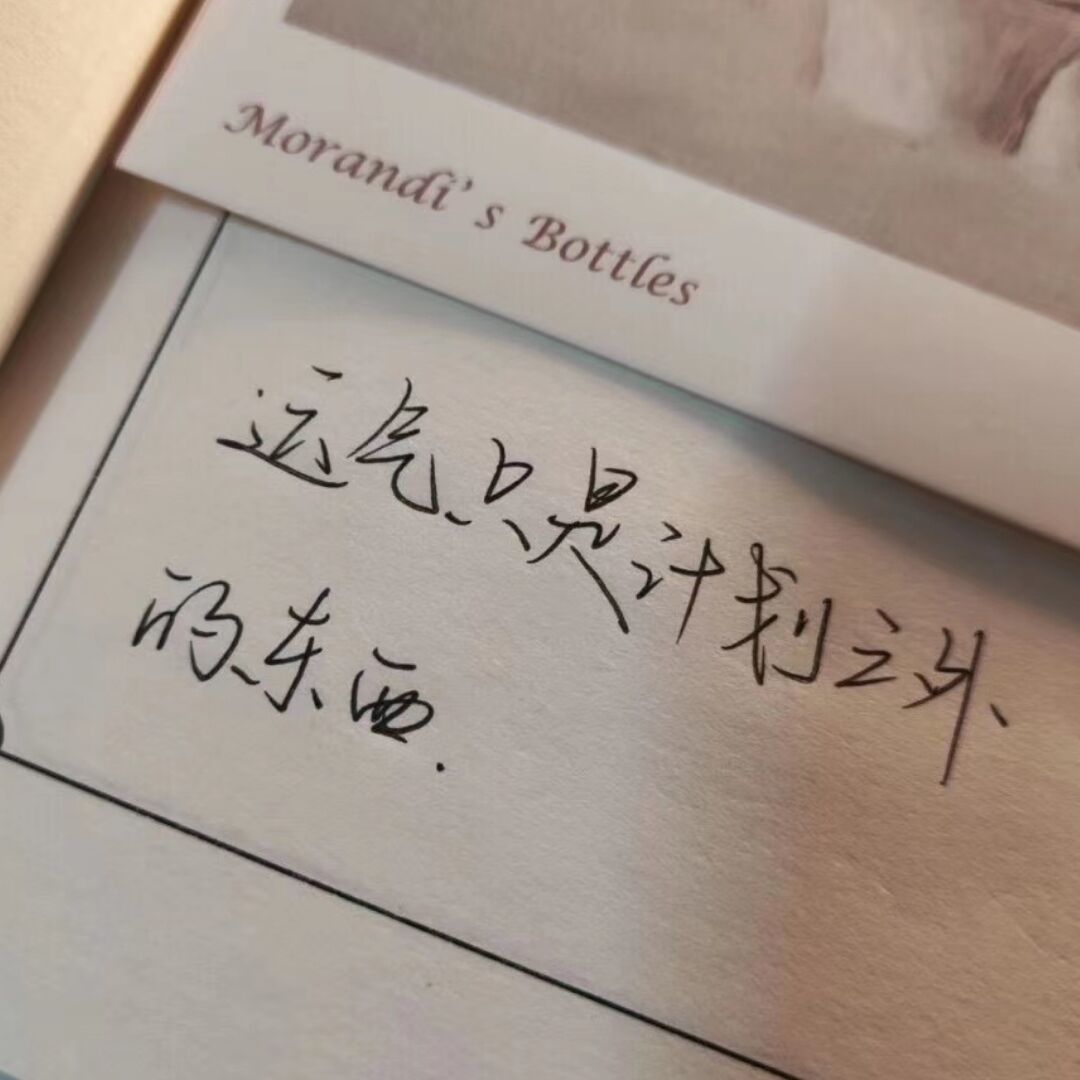 Morandi's Bottles
运气只是计划之外
的东西.